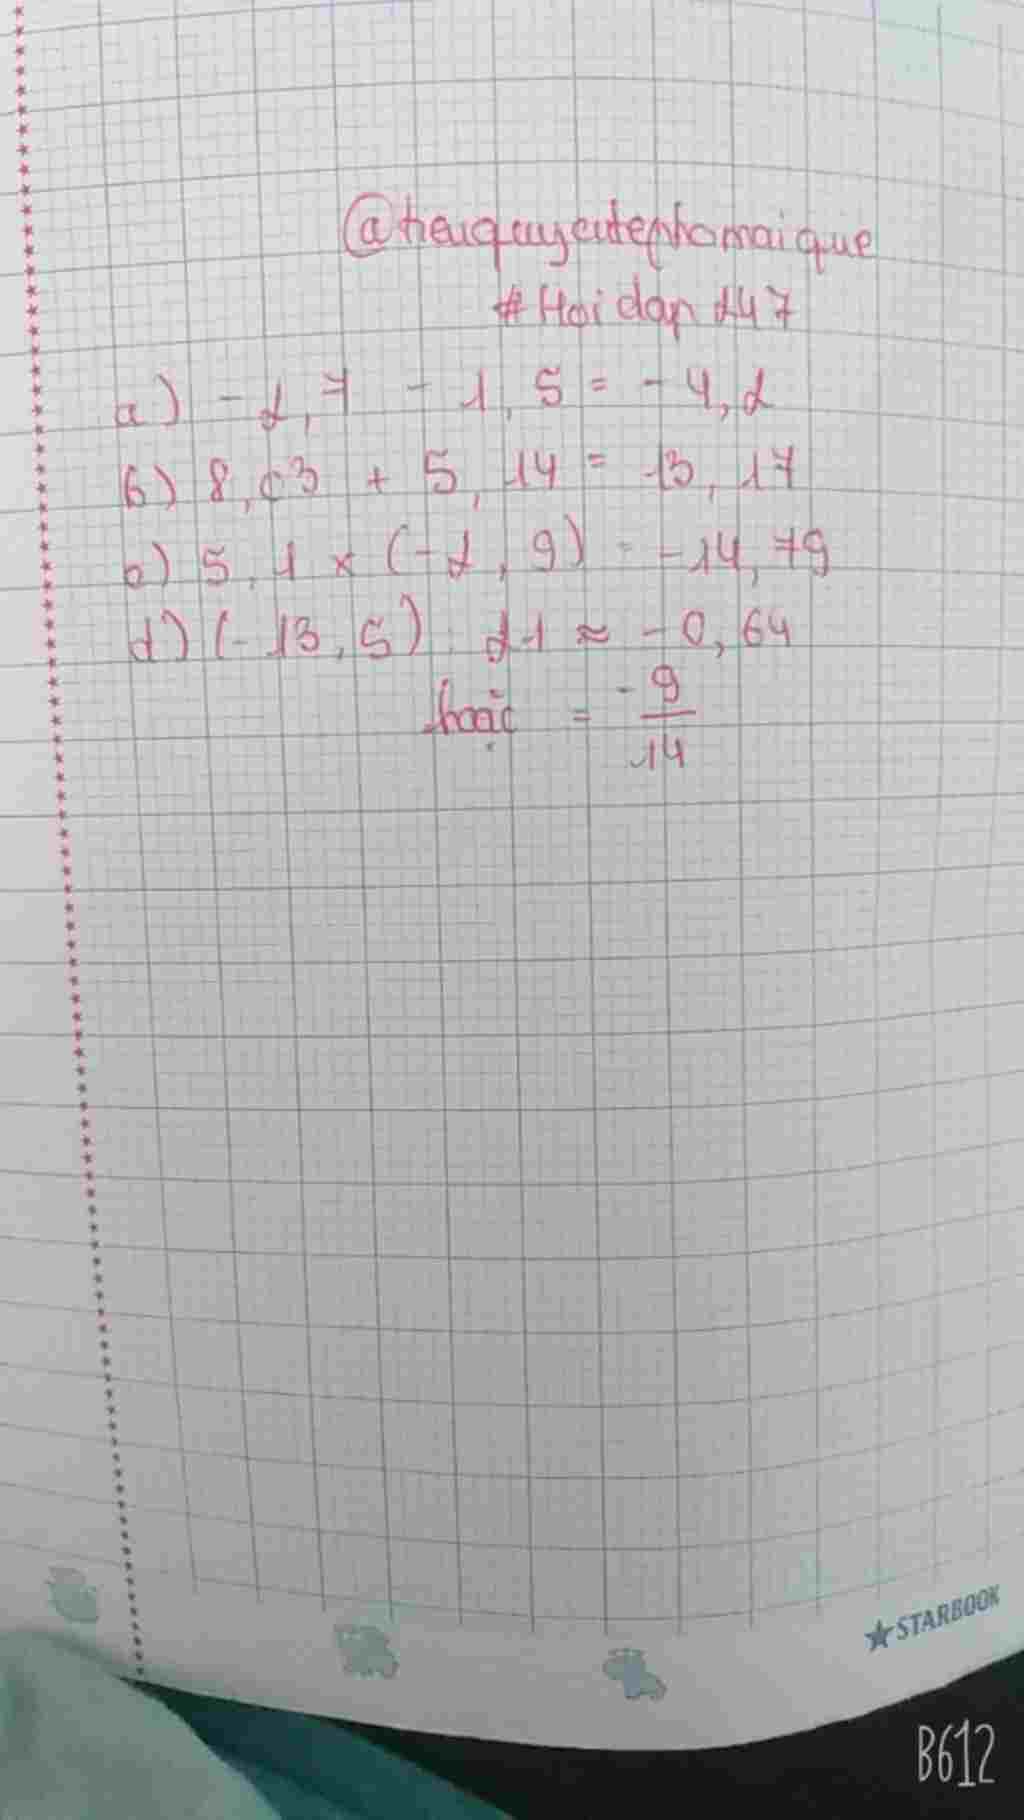 @heuquyeutephomaique
#Hoidap247
a) -2,7 - 1,5 = -4,2
b) 8,03 + 5,14 = 13,17
b) 5,1 x (-2,9) = -14,79
d) (-13,5) : 21 ≈ -0,64
hoặc = -9/14
★STARBOOK
B612